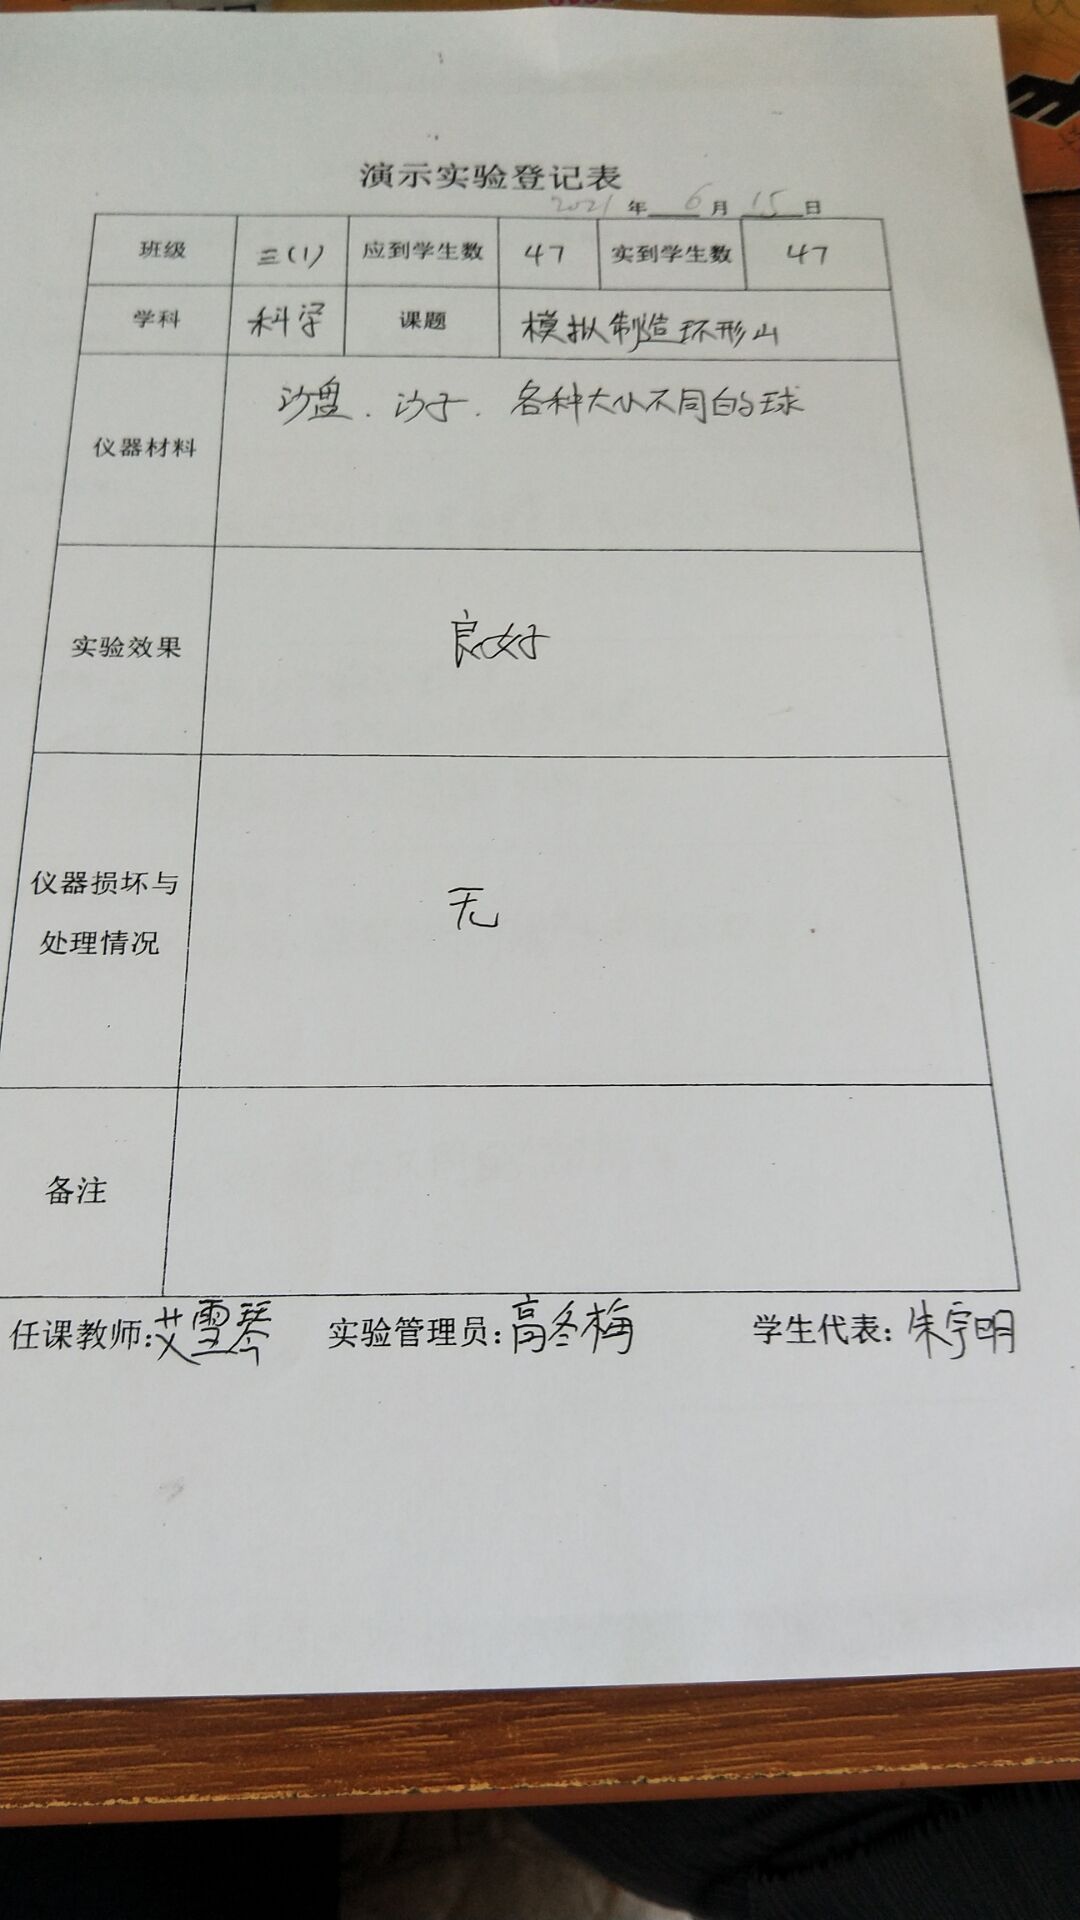 演示实验登记表
2021 年 6 月 15 日
班级 三(1) 应到学生数 47 实到学生数 47
学科 科学 课题 模拟制造环形山
仪器材料 沙盘、沙子、各种大小不同的球
实验效果 良好
仪器损坏与
处理情况 无
备注
任课教师:艾雪琴 实验管理员:高冬梅 学生代表:朱宇明